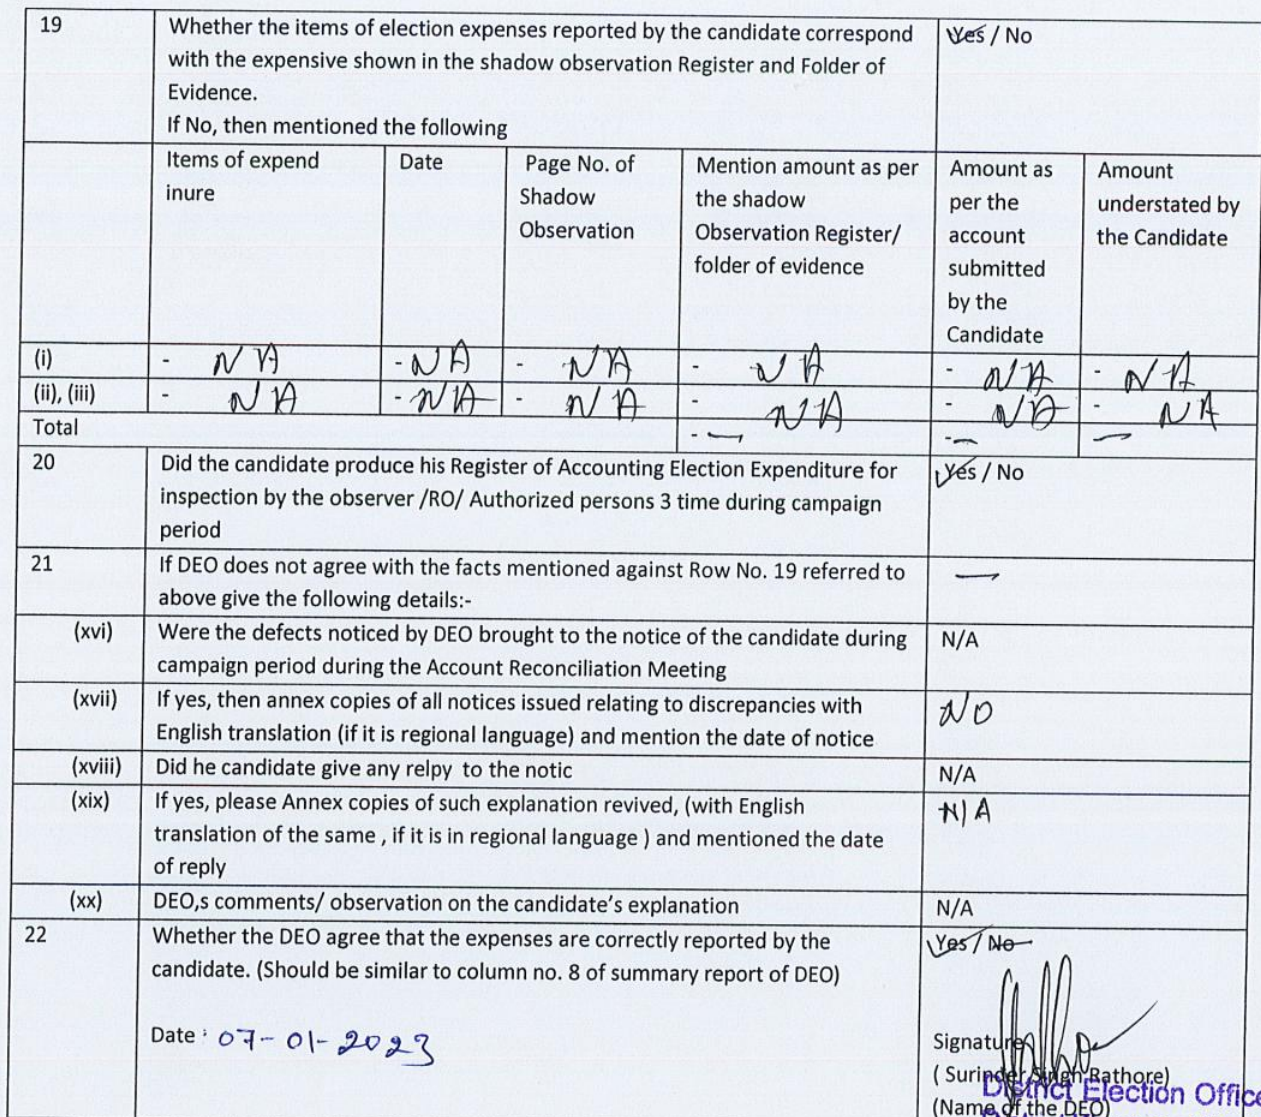 19 Whether the items of election expenses reported by the candidate correspond Yes / No
with the expensive shown in the shadow observation Register and Folder of
Evidence.
If No, then mentioned the following
Items of expend Date Page No. of Mention amount as per Amount as Amount
inure Shadow the shadow per the understated by
Observation Observation Register/ account the Candidate
folder of evidence submitted
by the
Candidate
(i) - NA - NA - NA - NA - NA - NA
(ii), (iii) - NA - NA - NA - NA - NA - NA
Total - — - — —
20 Did the candidate produce his Register of Accounting Election Expenditure for Yes / No
inspection by the observer /RO/ Authorized persons 3 time during campaign
period
21 If DEO does not agree with the facts mentioned against Row No. 19 referred to —
above give the following details:-
(xvi) Were the defects noticed by DEO brought to the notice of the candidate during N/A
campaign period during the Account Reconciliation Meeting
(xvii) If yes, then annex copies of all notices issued relating to discrepancies with NO
English translation (if it is regional language) and mention the date of notice
(xviii) Did he candidate give any relpy to the notic N/A
(xix) If yes, please Annex copies of such explanation revived, (with English N/A
translation of the same , if it is in regional language ) and mentioned the date
of reply
(xx) DEO,s comments/ observation on the candidate's explanation N/A
22 Whether the DEO agree that the expenses are correctly reported by the Yes / No
candidate. (Should be similar to column no. 8 of summary report of DEO)
Date : 07-01-2023 Signature
( Surinder Singh Rathore)
District Election Office
(Name of the DEO)